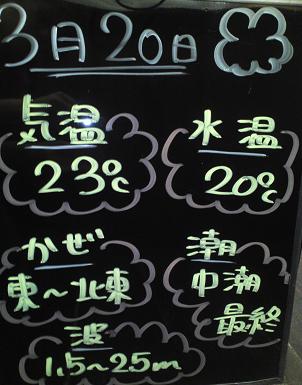 3月20日
気温
23℃
水温
20℃
かぜ
東～北東
潮
中潮
最終
波
1.5～25m